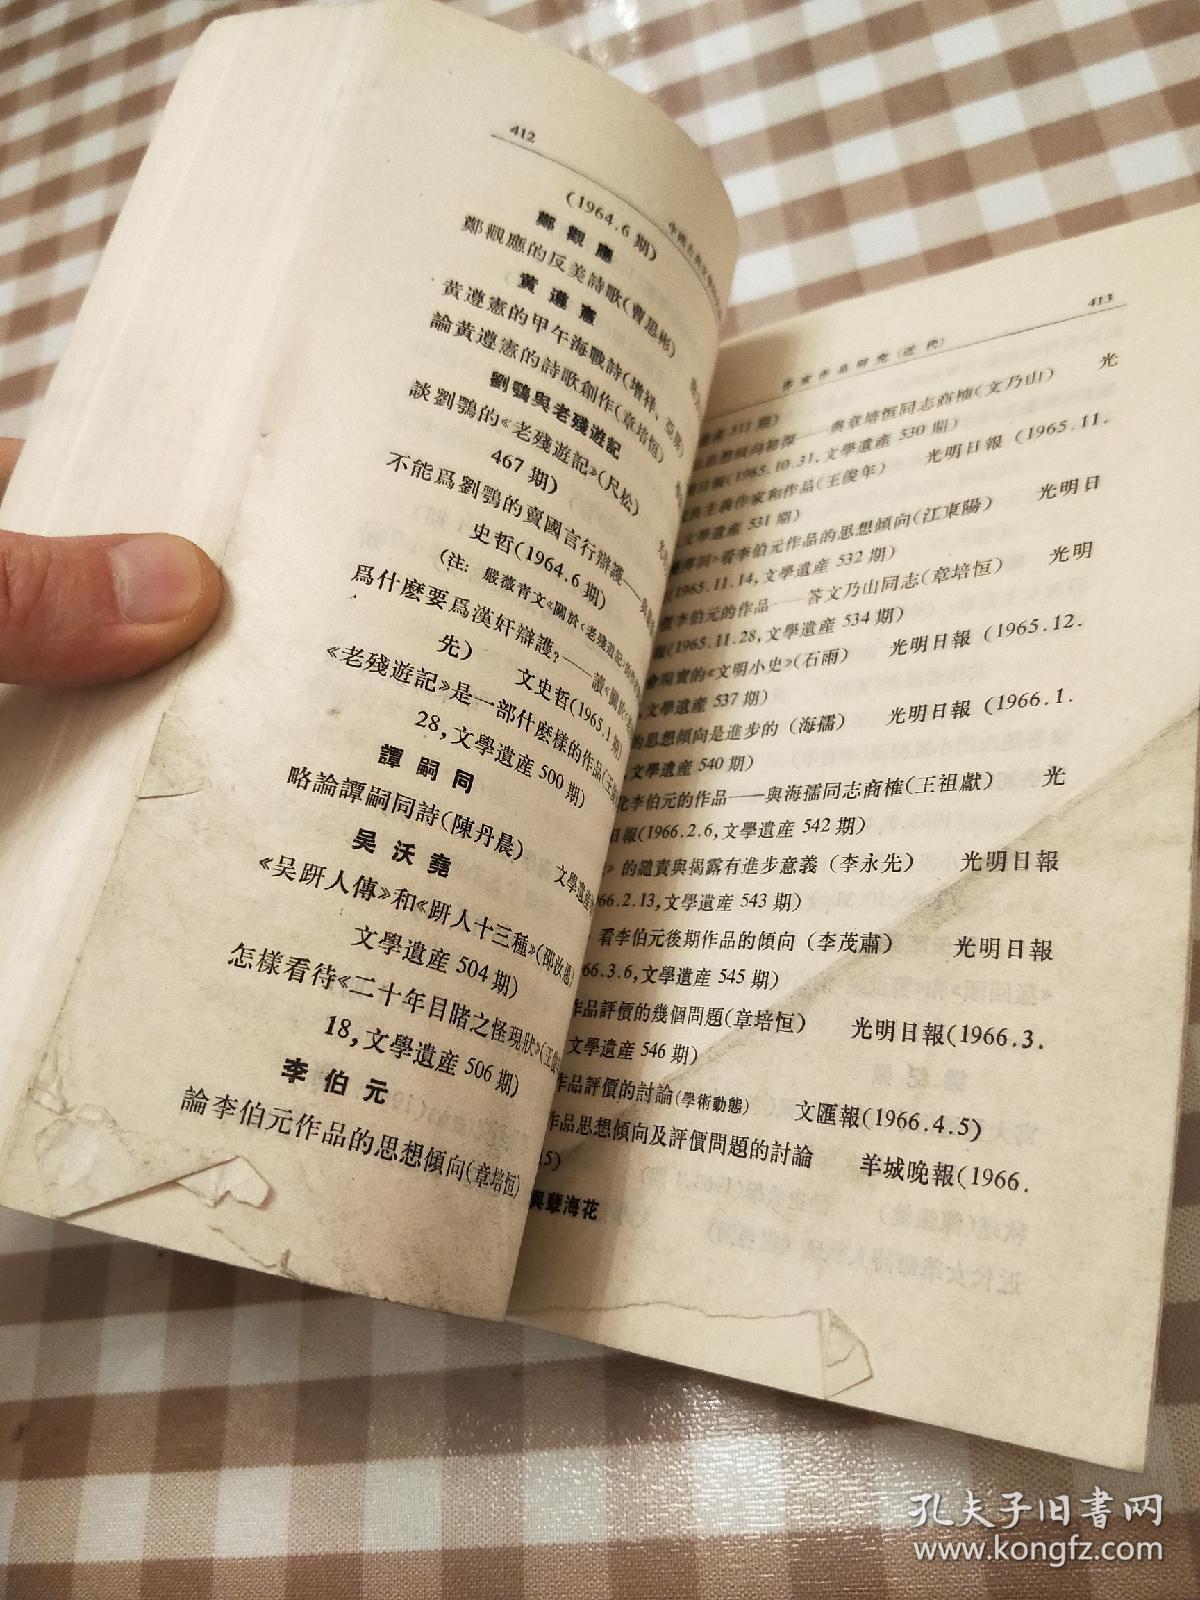 412
(1964.6期)
鄭觀應
鄭觀應的反美詩歌(曹思彬)
黃遵憲
黃遵憲的甲午海戰詩(增祥、
論黃遵憲的詩歌創作(章培恒)
劉鶚與老殘遊記
談劉鶚的《老殘遊記》(尺松)
467期)
不能爲劉鶚的賣國言行辯護——
史哲(1964.6期)
(注: 嚴薇青文《關於〈老殘遊記〉
爲什麽要爲漢奸辯護?——讀《關
先) 文史哲(1965.1期)
《老殘遊記》是一部什麽樣的作品(王
28,文學遺産500期)
譚嗣同
略論譚嗣同詩(陳丹晨) 文學遺産
吴沃堯
《吴趼人傳》和《趼人十三種》(
文學遺産504期)
怎樣看待《二十年目睹之怪現狀》(王
18,文學遺産506期)
李伯元
論李伯元作品的思想傾向(章培恒)
413
作家作品研究(近代)
511期)
思想傾向初探——與章培恒同志商榷(文乃山) 光
日報(1965.10.31,文學遺産530期)
民主主義作家和作品(王俊年) 光明日報(1965.11.
文學遺産531期)
彈詞》看李伯元作品的思想傾向(江東陽) 光明日
(1965.11.14,文學遺産532期)
李伯元的作品——答文乃山同志(章培恒) 光明
報(1965.11.28,文學遺産534期)
會現實的《文明小史》(石雨) 光明日報(1965.12.
文學遺産537期)
的思想傾向是進步的(海孺) 光明日報(1966.1.
文學遺産540期)
化李伯元的作品——與海孺同志商榷(王祖獻) 光
日報(1966.2.6,文學遺産542期)
》的譴責與揭露有進步意義(李永先) 光明日報
66.2.13,文學遺産543期)
看李伯元後期作品的傾向(李茂肅) 光明日報
66.3.6,文學遺産545期)
作品評價的幾個問題(章培恒) 光明日報(1966.3.
文學遺産546期)
作品評價的討論(學術動態) 文匯報(1966.4.5)
作品思想傾向及評價問題的討論 羊城晚報(1966.
5)
與孽海花
孔夫子旧书网
www.kongfz.com